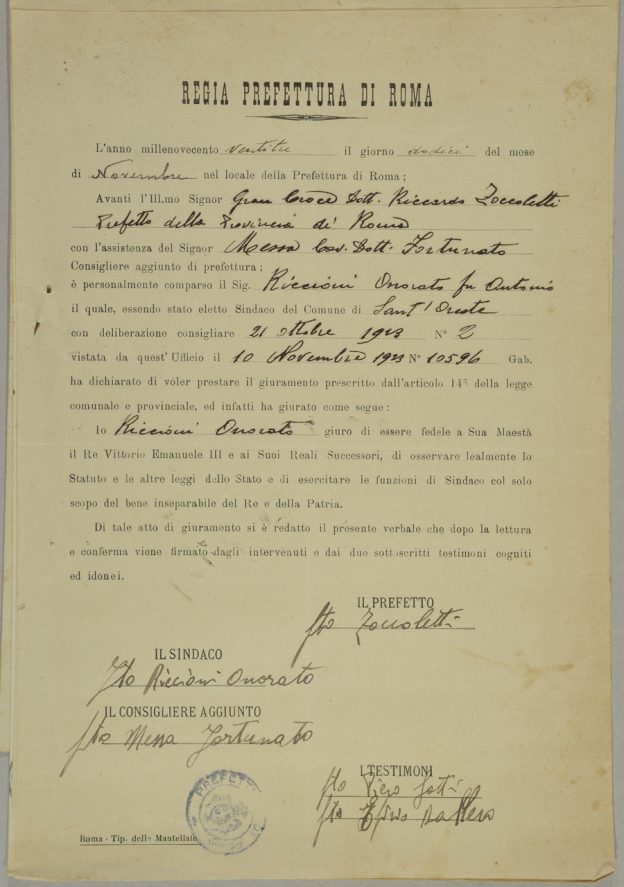 REGIA PREFETTURA DI ROMA
L'anno millenovecento ventitre il giorno dodici del mese
di Novembre nel locale della Prefettura di Roma;
Avanti l'Ill.mo Signor Gran Croce Dott. Riccardo Zoccoletti
Prefetto della Provincia di Roma
con l'assistenza del Signor Messa Cav. Dott. Fortunato
Consigliere aggiunto di prefettura;
è personalmente comparso il Sig. Riccioni Onorato fu Antonio
il quale, essendo stato eletto Sindaco del Comune di Sant'Oreste
con deliberazione consigliare 21 Ottobre 1923 N° 2
vistata da quest'Ufficio il 10 Novembre 1923 N° 10596 Gab.
ha dichiarato di voler prestare il giuramento prescritto dall'articolo 14° della legge
comunale e provinciale, ed infatti ha giurato come segue:
Io Riccioni Onorato giuro di essere fedele a Sua Maestà
il Re Vittorio Emanuele III e ai Suoi Reali Successori, di osservare lealmente lo
Statuto e le altre leggi dello Stato e di esercitare le funzioni di Sindaco col solo
scopo del bene inseparabile del Re e della Patria.
Di tale atto di giuramento si è redatto il presente verbale che dopo la lettura
e conferma viene firmato dagli intervenuti e dai due sottoscritti testimoni cogniti
ed idonei.
IL PREFETTO
fto Zoccoletti
IL SINDACO
fto Riccioni Onorato
IL CONSIGLIERE AGGIUNTO
fto Messa Fortunato
I TESTIMONI
fto Piero Gatti
fto
PREFETT
Roma - Tip. delle Mantellate